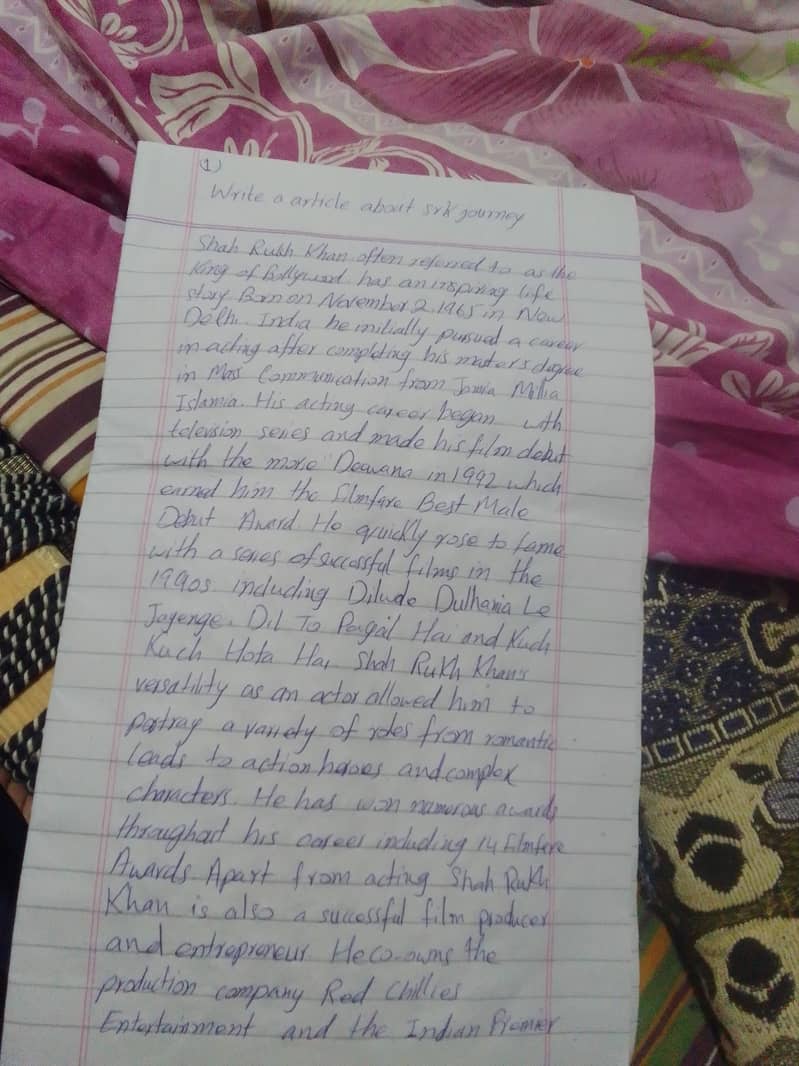 1)
Write a article about srk journey
Shah Rukh Khan often referred to as the
King of Bollywood has an inspiring life
story Born on November 2, 1965 in New
Delhi. India he initially pursued a career
in acting after completing his master's degree
in Mass Communication from Jamia Millia
Islamia. His acting career began with
television series and made his film debut
with the movie "Deewana in 1992 which
earned him the filmfare Best Male
Debut Award. He quickly rose to fame
with a series of successful films in the
1990s including Dilwale Dulhania Le
Jayenge. Dil To Pagal Hai and Kuch
Kuch Hota Hai Shah Rukh Khan's
versatility as an actor allowed him to
portray a variety of roles from romantic
leads to action heroes and complex
characters. He has won numerous awards
throughout his career including 14 filmfare
Awards Apart from acting Shah Rukh
Khan is also a successful film producer
and entrepreneur He co-owns the
production company Red Chillies
Entertainment and the Indian Premier